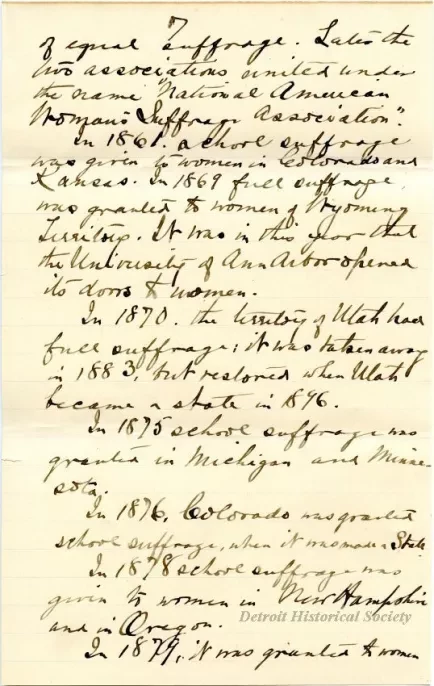 7
of equal suffrage. Later the
two associations united under
the name "National American
Woman's Suffrage Association".
In 1861. school suffrage
was given to women in Colorado and
Kansas. In 1869 full suffrage
was granted to women of Wyoming
Territory. It was in this year that
the University of Ann Arbor opened
its doors to women.
In 1870. the territory of Utah had
full suffrage; it was taken away
in 1883, but restored when Utah
became a state in 1896.
In 1875 school suffrage was
granted in Michigan and Minne-
sota.
In 1876, Colorado was granted
school suffrage, when it was made a State
In 1878 school suffrage was
given to women in New Hampshire
and in Oregon.
Detroit Historical Society
In 1879, it was granted to women